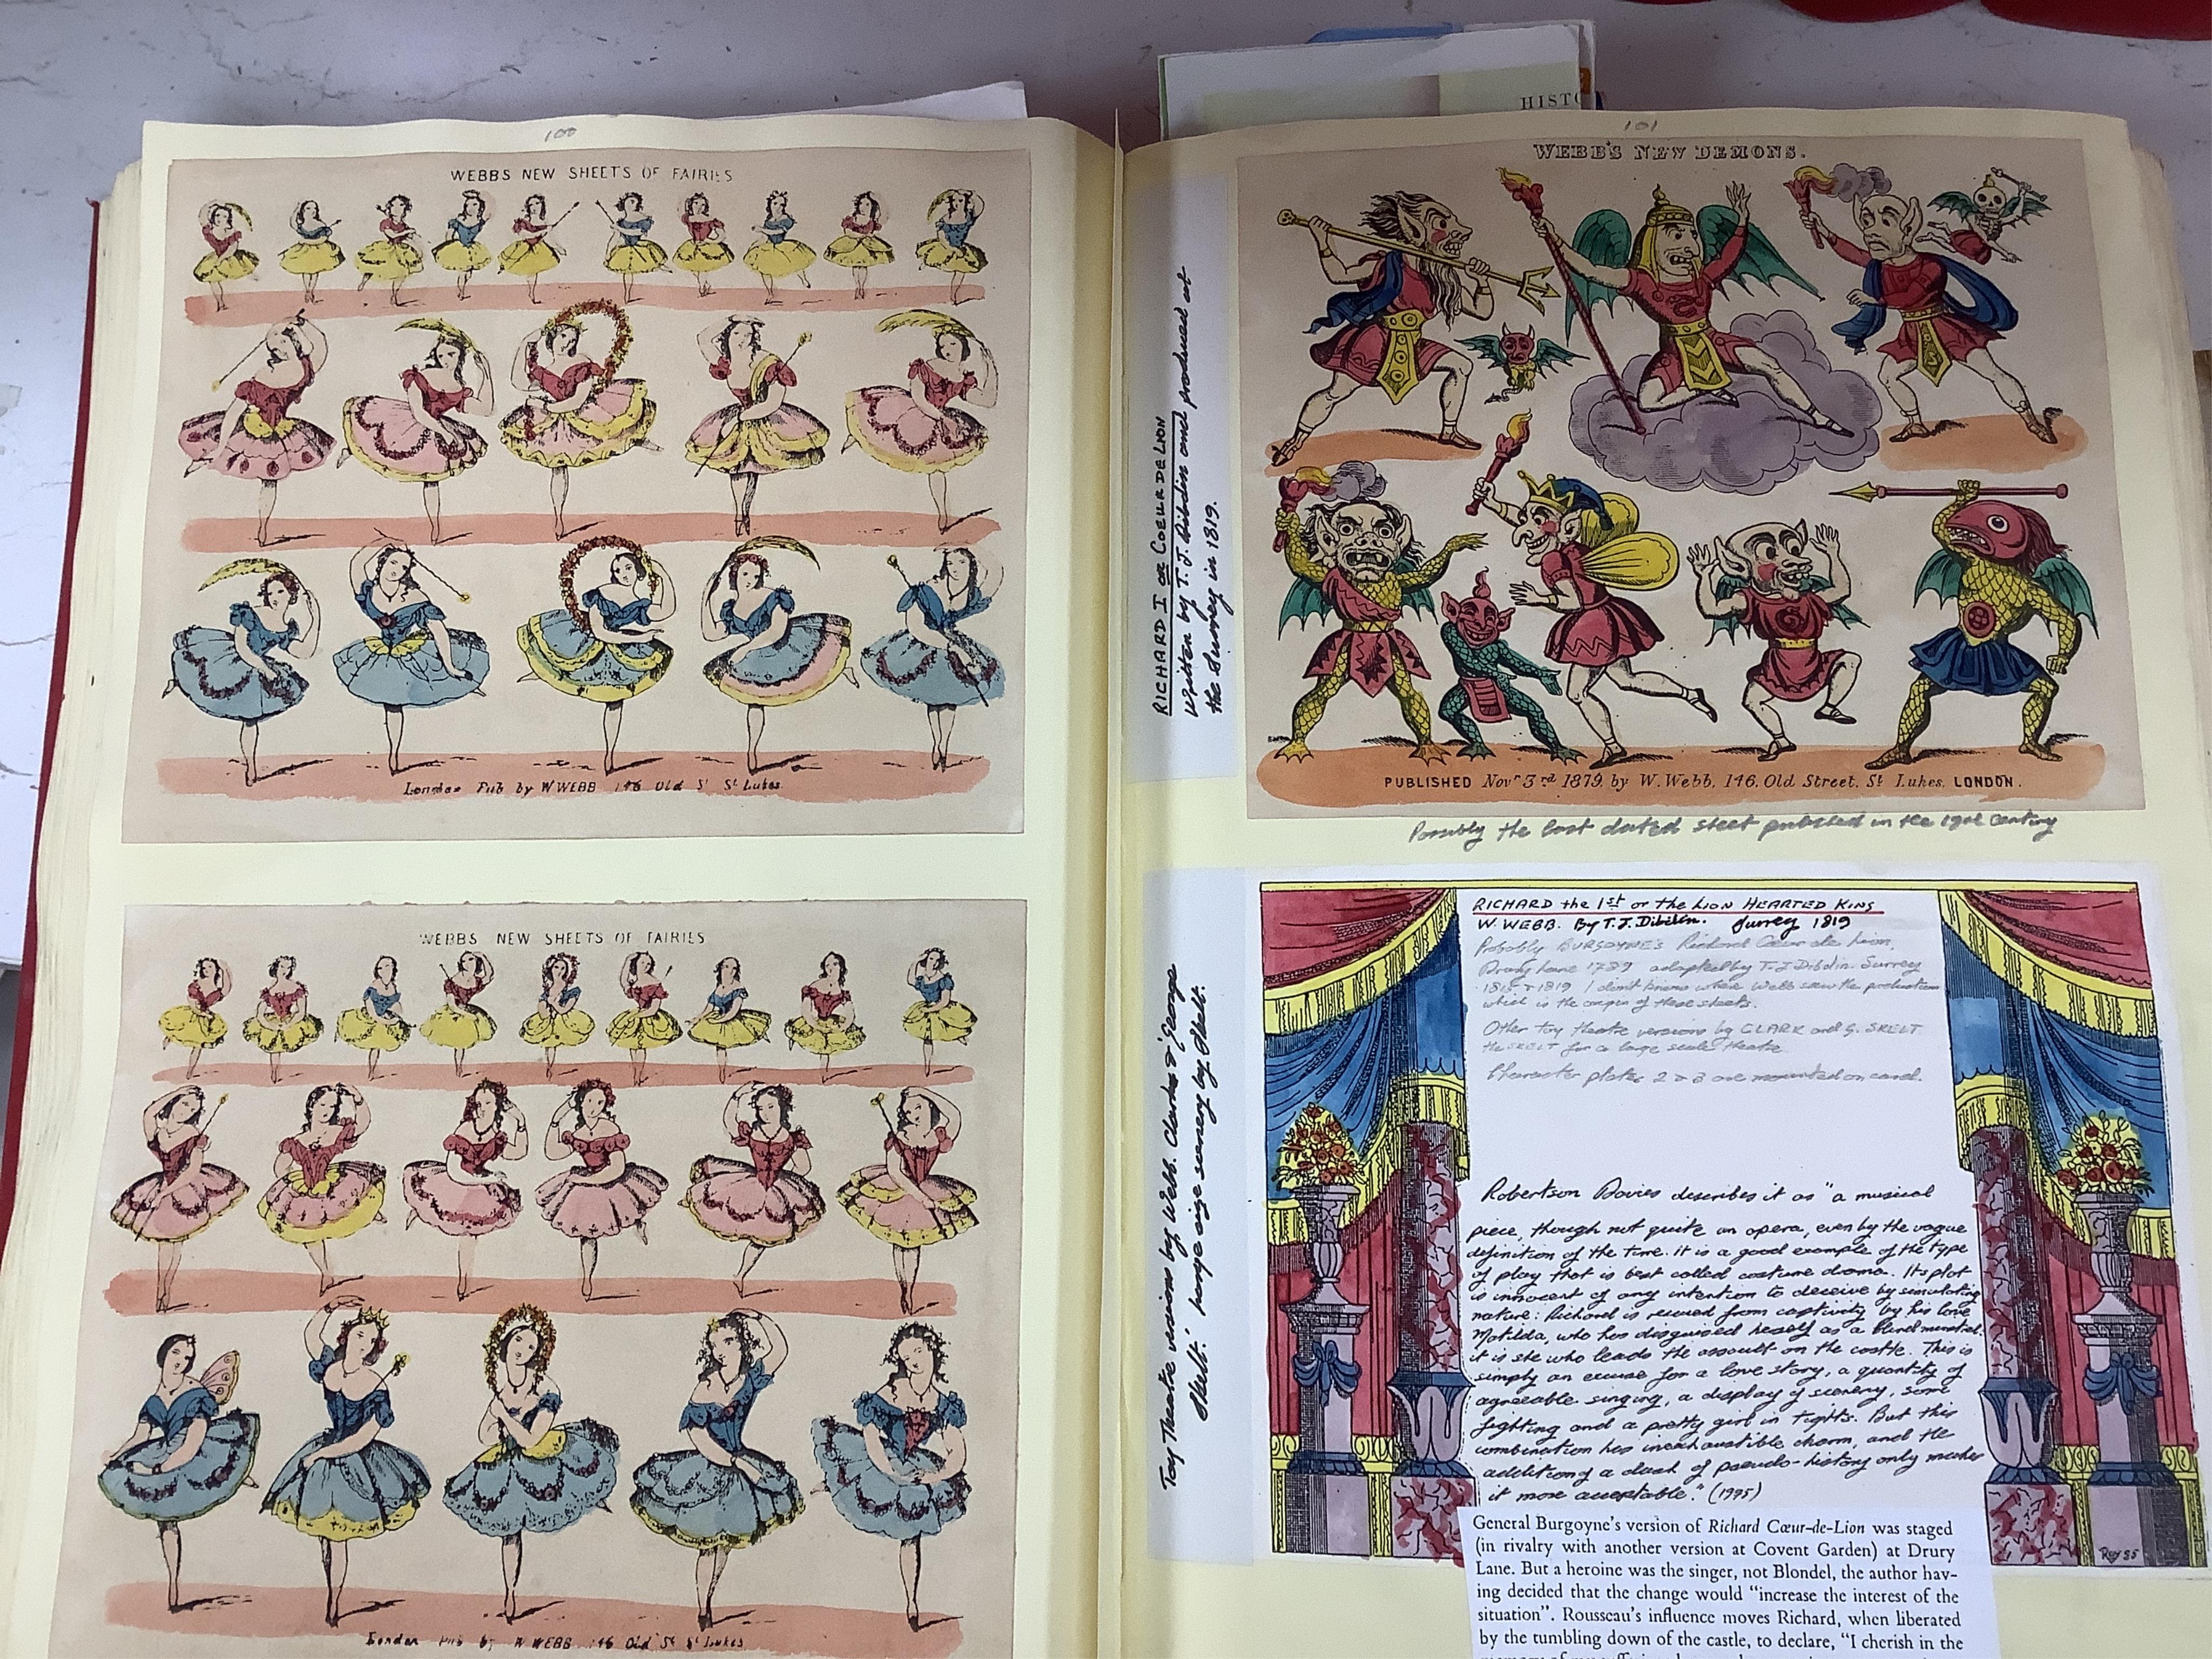 HISTO
100
WEBBS NEW SHEETS OF FAIRIES
London Pub by W WEBB 146 Old St St Lukes
WEBBS NEW SHEETS OF FAIRIES
London Pub by W WEBB 146 Old St St Lukes
101
RICHARD I or COEUR DE LION
Written by T. J. Dibdin and produced at
the Surrey in 1819.
WEBB'S NEW DEMONS.
PUBLISHED Novr 3rd 1879, by W. Webb, 146, Old Street, St Lukes, LONDON.
Possibly the last dated sheet published in the 19th Century
Toy Theatre versions by Webb. Clarke & George
Skelt. large size scenery by Skelt.
RICHARD the 1st or the LION HEARTED KING
W. WEBB. By T. J. Dibdin. Surrey 1819
Probably BURGOYNE'S Richard Cœur de Lion,
Drury Lane 1789 adapted by T. J Dibdin. Surrey
1818 & 1819 I dont know where Webb saw the production
which is the origin of these sheets.
Other toy theatre versions by CLARK and G. SKELT
the SKELT for a large scale theatre
Character plates 2 & 3 are mounted on card.
Robertson Davies describes it as "a musical
piece, though not quite an opera, even by the vague
definition of the time. it is a good example of the type
of play that is best called costume drama. Its plot
is innocent of any intention to deceive by simulating
nature: Richard is rescued from captivity by his love
Matilda, who has disguised herself as a blind minstrel.
it is she who leads the assault on the castle. This is
simply an excuse for a love story, a quantity of
agreeable singing, a display of scenery, some
fighting and a pretty girl in tights. But this
combination has inexhaustible charm, and the
addition of a dash of pseudo-history only makes
it more acceptable." (1975)
Roy 85
General Burgoyne's version of Richard Cœur-de-Lion was staged
(in rivalry with another version at Covent Garden) at Drury
Lane. But a heroine was the singer, not Blondel, the author hav-
ing decided that the change would "increase the interest of the
situation". Rousseau's influence moves Richard, when liberated
by the tumbling down of the castle, to declare, "I cherish in the